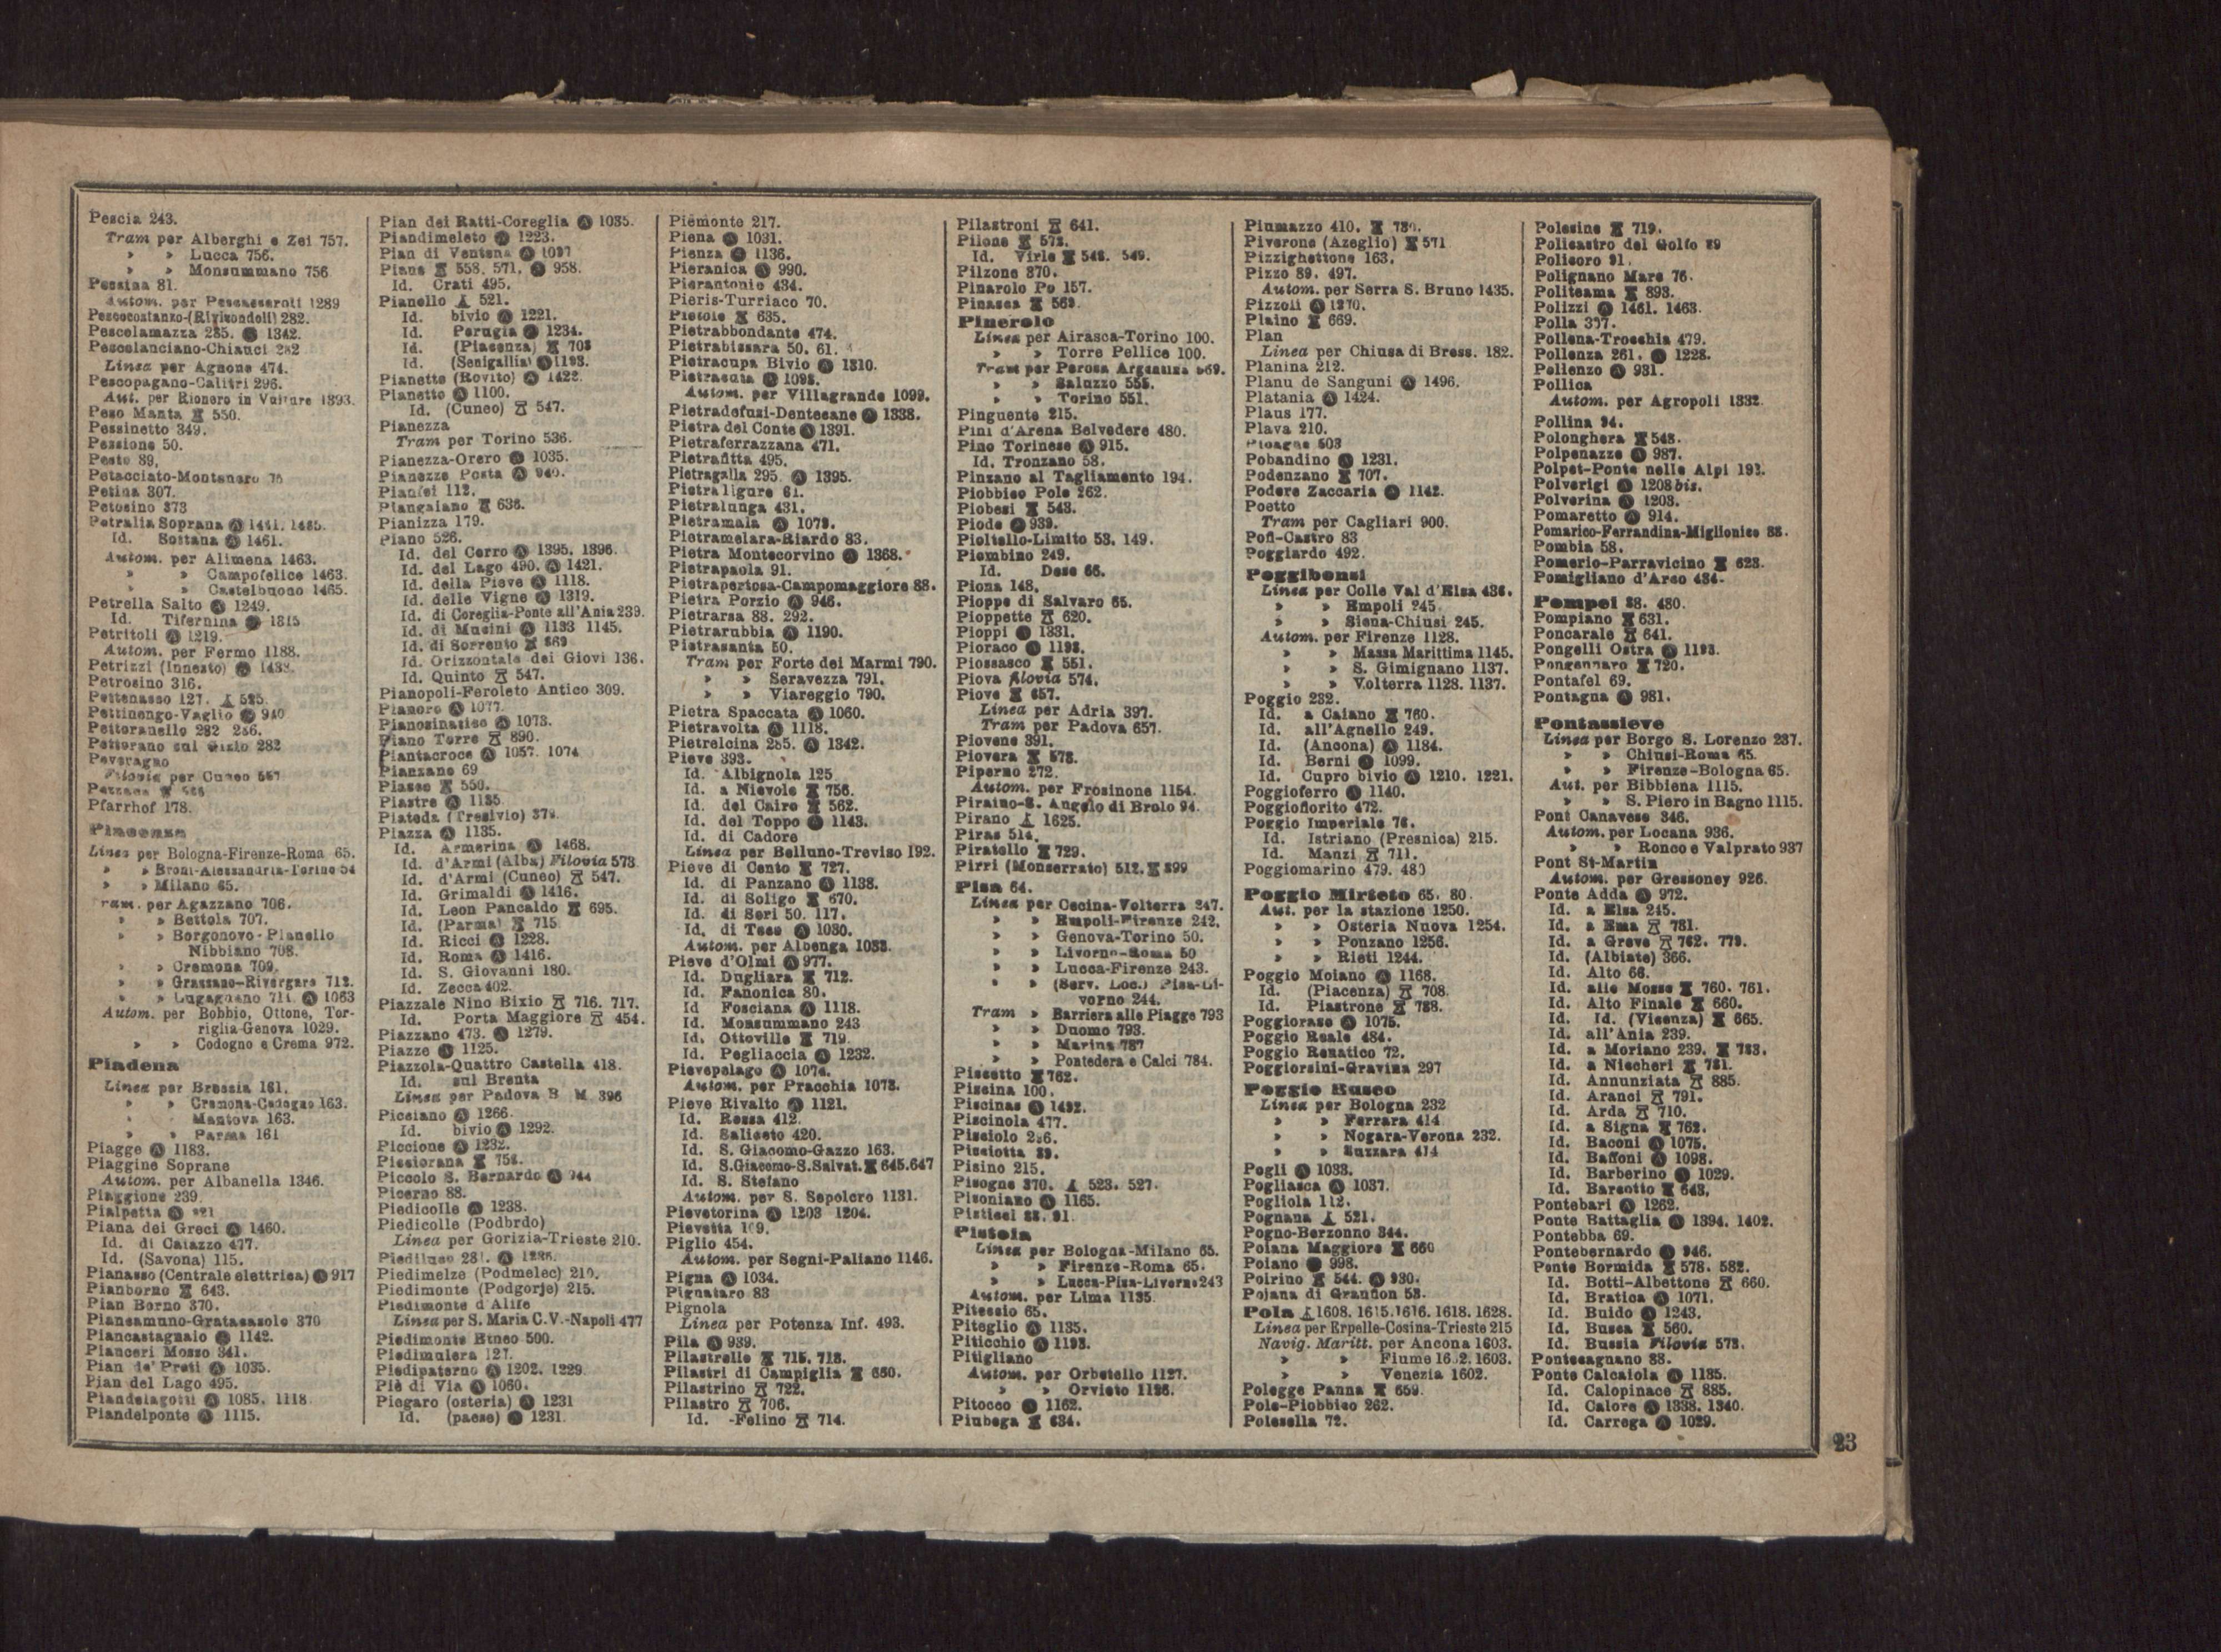 Pescia 243.
Tram per Alberghi e Zei 757.
» » Lucca 756.
» » Monsummano 756
Pessina 81.
Autom. per Pescasseroli 1289
Pescocostanzo-(Rivisondoli) 282.
Pescolamazza 285. Ⓐ 1342.
Pescolanciano-Chiauci 282
Linea per Agnone 474.
Pescopagano-Calitri 296.
Aut. per Rionero in Vulture 1393.
Peso Manta 550.
Pessinetto 349.
Pessione 50.
Pesto 89.
Petacciato-Montenero 76
Petina 307.
Petosino 373
Petralia Soprana Ⓐ 1461. 1465.
Id. Sottana Ⓐ 1461.
Autom. per Alimena 1463.
» » Campofelice 1463.
» » Castelbuono 1465.
Petrella Salto Ⓐ 1249.
Id. Tifernina Ⓐ 1315
Petritoli Ⓐ 1219.
Autom. per Fermo 1188.
Petrizzi (Innesto) Ⓐ
Petrosino 316.
Pettenasso 127. 525.
Pettinengo-Vaglio Ⓐ 940
Pettoranello 282 286.
Pettorano sul Gizio 282
Peveragno
Filovia per Cuneo 557
Pfarrhof 178.
Piacenza
Linea per Bologna-Firenze-Roma 65.
» » Broni-Alessandria-Torino 54
» » Milano 65.
Tram. per Agazzano 706.
» » Bettola 707.
» » Borgonovo-Pianello
Nibbiano 708.
» » Cremona 709.
» » Grazzano-Rivergaro 712.
» » Lugagnano 711. Ⓐ 1063
Autom. per Bobbio, Ottone, Tor-
riglia-Genova 1029.
» » Codogno e Crema 972.
Piadena
Linea per Brescia 161.
» » Cremona-Codogno 163.
» » Mantova 163.
» » Parma 161
Piagge Ⓐ 1183.
Piaggine Soprane
Autom. per Albanella 1346.
Piaggione 239.
Pialpetta Ⓐ 921
Piana dei Greci Ⓐ 1460.
Id. di Caiazzo 477.
Id. (Savona) 115.
Pianasso (Centrale elettrica) Ⓐ 917
Pianborno 643.
Pian Borno 370.
Piansamuno-Gratacasolo 370
Piancastagnaio Ⓐ 1142.
Pianceri Mosso 341.
Pian de' Preti Ⓐ 1035.
Pian del Lago 495.
Piandelagotti Ⓐ 1085. 1118
Piandelponte Ⓐ 1115.
Pian dei Ratti-Coreglia Ⓐ 1035.
Piandimeleto Ⓐ 1223.
Pian di Ventena Ⓐ 1097
Piane 558. 571. Ⓐ 958.
Id. Crati 495.
Pianello 521.
Id. bivio Ⓐ 1221.
Id. Perugia Ⓐ 1234.
Id. (Piacenza) 708
Id. (Senigallia) Ⓐ 1193.
Pianette (Rovito) Ⓐ 1422.
Pianetto Ⓐ 1100.
Id. (Cuneo) 547.
Pianezza
Tram per Torino 536.
Pianezza-Orero Ⓐ 1035.
Pianezze Posta Ⓐ 940.
Pianfei 112.
Piangaiano 636.
Pianizza 179.
Piano 526.
Id. del Cerro Ⓐ 1395. 1396.
Id. del Lago 490. Ⓐ 1421.
Id. della Pieve Ⓐ 1118.
Id. delle Vigne Ⓐ 1319.
Id. di Coreglia-Ponte all'Ania 239.
Id. di Mucini Ⓐ 1133 1145.
Id. di Sorrento 869
Id. Orizzontale dei Giovi 136.
Id. Quinto 547.
Pianopoli-Feroleto Antico 309.
Pianoro Ⓐ 1077.
Pianosinatico Ⓐ 1073.
Piano Torre 890.
Piantacroce Ⓐ 1057. 1074
Pianzano 69
Piasco 550.
Piastre Ⓐ 1135
Piateda (Tresivio) 379.
Piazza Ⓐ 1135.
Id. Armerina Ⓐ 1468.
Id. d'Armi (Alba) Filovia 573
Id. d'Armi (Cuneo) 547.
Id. Grimaldi Ⓐ 1416.
Id. Leon Pancaldo 695.
Id. (Parma) 715
Id. Ricci Ⓐ 1228.
Id. Roma Ⓐ 1416.
Id. S. Giovanni 180.
Id. Zecca 402.
Piazzale Nino Bixio 716. 717.
Id. Porta Maggiore 454.
Piazzano 473. Ⓐ 1279.
Piazze Ⓐ 1125.
Piazzola-Quattro Castella 418.
Id. sul Brenta
Linea per Padova B M 396
Piceiano Ⓐ 1266.
Id. bivio Ⓐ 1292.
Piccione Ⓐ 1232.
Picciorana 758.
Piccolo S. Bernardo Ⓐ 944
Picerno 88.
Piedicolle Ⓐ 1238.
Piedicolle (Podbrdo)
Linea per Gorizia-Trieste 210.
Piediluco 281. Ⓐ 1286.
Piedimelze (Podmelec) 210.
Piedimonte (Podgorje) 215.
Piedimonte d'Alife
Linea per S. Maria C.V.-Napoli 477
Piedimonte Etneo 500.
Piedimulera 127.
Piedipaterno Ⓐ 1202. 1229.
Piè di Via Ⓐ 1060.
Piegaro (osteria) Ⓐ 1231
Id. (paese) Ⓐ 1231.
Piemonte 217.
Piena Ⓐ 1031.
Pienza Ⓐ 1136.
Pieranica Ⓐ 990.
Pierantonio 434.
Pieris-Turriaco 70.
Pietole 635.
Pietrabbondante 474.
Pietrabissara 50. 61.
Pietracupa Bivio Ⓐ 1310.
Pietracuta Ⓐ 1098.
Autom. per Villagrande 1099.
Pietradefusi-Dentecane Ⓐ 1338.
Pietra del Conte Ⓐ 1391.
Pietraferrazzana 471.
Pietrafitta 495.
Pietragalla 295. Ⓐ 1395.
Pietraligure 61.
Pietralunga 431.
Pietramala Ⓐ 1078.
Pietramelara-Riardo 83.
Pietra Montecorvino Ⓐ 1368.
Pietrapaola 91.
Pietrapertosa-Campomaggiore 88.
Pietra Porzio Ⓐ 946.
Pietrarsa 88. 292.
Pietrarubbia Ⓐ 1190.
Pietrasanta 50.
Tram per Forte dei Marmi 790.
» » Seravezza 791.
» » Viareggio 790.
Pietra Spaccata Ⓐ 1060.
Pietravolta Ⓐ 1118.
Pietrelcina 285. Ⓐ 1342.
Pieve 393.
Id. Albignola 125
Id. a Nievole 756.
Id. del Cairo 562.
Id. del Toppo Ⓐ 1143.
Id. di Cadore
Linea per Belluno-Treviso 192.
Pieve di Cento 727.
Id. di Panzano Ⓐ 1138.
Id. di Soligo 670.
Id. di Sori 50. 117.
Id. di Teco Ⓐ 1030.
Autom. per Albenga 1033.
Pieve d'Olmi Ⓐ 977.
Id. Dugliara 712.
Id. Fanonica 80.
Id Fosciana Ⓐ 1118.
Id. Monsummano 243
Id. Ottoville 719.
Id. Pegliaccia Ⓐ 1232.
Pievepelago Ⓐ 1074.
Autom. per Pracchia 1073.
Pieve Rivalto Ⓐ 1121.
Id. Rossa 412.
Id. Saliceto 420.
Id. S. Giacomo-Gazzo 163.
Id. S.Giacomo-S.Salvat. 645.647
Id. S. Stefano
Autom. per S. Sepolcro 1131.
Pievetorina Ⓐ 1203 1204.
Pievetta 109.
Piglio 454.
Autom. per Segni-Paliano 1146.
Pigna Ⓐ 1034.
Pignataro 83
Pignola
Linea per Potenza Inf. 493.
Pila Ⓐ 939.
Pilastrello 715. 718.
Pilastri di Campiglia 660.
Pilastrino 722.
Pilastro 706.
Id. -Felino 714.
Pilastroni 641.
Pilone 573.
Id. Virle 548. 549.
Pilzone 370.
Pinarolo Po 157.
Pinasca 569.
Pinerolo
Linea per Airasca-Torino 100.
» » Torre Pellice 100.
Tram per Perosa Argentina 569.
» » Saluzzo 555.
» » Torino 551.
Pinguente 215.
Pini d'Arena Belvedere 480.
Pino Torinese Ⓐ 915.
Id. Tronzano 58.
Pinzano al Tagliamento 194.
Piobbico Pole 262.
Piobesi 543.
Piode Ⓐ 939.
Pioltello-Limito 53. 149.
Piombino 249.
Id. Dese 66.
Piona 148.
Pioppe di Salvaro 65.
Pioppette 620.
Pioppi Ⓐ 1331.
Pioraco Ⓐ 1198.
Piossasco 551.
Piova filovia 574.
Piove 657.
Linea per Adria 397.
Tram per Padova 657.
Piovene 391.
Piovera 578.
Piperno 272.
Autom. per Frosinone 1154.
Piraino-S. Angelo di Brolo 94.
Pirano 1625.
Piras 514.
Piratello 729.
Pirri (Monserrato) 512. 899
Pisa 64.
Linea per Cecina-Volterra 247.
» » Empoli-Firenze 242.
» » Genova-Torino 50.
» » Livorno-Roma 50
» » Lucca-Firenze 243.
» » (Serv. Loc.) Pisa-Li-
vorno 244.
Tram » Barriera alle Piagge 793
» » Duomo 793.
» » Marina 787
» » Pontedera e Calci 784.
Piscetto 762.
Piscina 100.
Piscinas Ⓐ 1492.
Piscinola 477.
Pisciolo 286.
Pisciotta 89.
Pisino 215.
Pisogne 370. 523. 527.
Pisoniano Ⓐ 1165.
Pisticci 88. 91.
Pistoia
Linea per Bologna-Milano 65.
» » Firenze-Roma 65.
» » Lucca-Pisa-Livorno 243
Autom. per Lima 1135.
Piteccio 65.
Piteglio Ⓐ 1135.
Piticchio Ⓐ 1193.
Pitigliano
Autom. per Orbetello 1127.
» » Orvieto 1126.
Pitocco Ⓐ 1162.
Piubega 634.
Piumazzo 410. 730.
Piverone (Azeglio) 571
Pizzighettone 163.
Pizzo 89. 497.
Autom. per Serra S. Bruno 1435.
Pizzoli Ⓐ 1270.
Plaino 669.
Plan
Linea per Chiusa di Bress. 182.
Planina 212.
Planu de Sanguni Ⓐ 1496.
Platania Ⓐ 1424.
Plaus 177.
Plava 210.
Ploaghe 503
Pobandino Ⓐ 1231.
Podenzano 707.
Podere Zaccaria Ⓐ 1142.
Poetto
Tram per Cagliari 900.
Pofi-Castro 83
Poggiardo 492.
Poggibonsi
Linea per Colle Val d'Elsa 436.
» » Empoli 245
» » Siena-Chiusi 245.
Autom. per Firenze 1128.
» » Massa Marittima 1145.
» » S. Gimignano 1137.
» » Volterra 1128. 1137.
Poggio 232.
Id. a Caiano 760.
Id. all'Agnello 249.
Id. (Ancona) Ⓐ 1184.
Id. Berni Ⓐ 1099.
Id. Cupro bivio Ⓐ 1210. 1221.
Poggioferro Ⓐ 1140.
Poggiofiorito 472.
Poggio Imperiale 76.
Id. Istriano (Presnica) 215.
Id. Manzi 711.
Poggiomarino 479. 480
Poggio Mirteto 65. 80.
Aut. per la stazione 1250.
» » Osteria Nuova 1254.
» » Ponzano 1256.
» » Rieti 1244.
Poggio Moiano Ⓐ 1168.
Id. (Piacenza) 708.
Id. Piastrone 788.
Poggioraso Ⓐ 1075.
Poggio Reale 484.
Poggio Renatico 72.
Poggiorsini-Gravina 297
Poggio Rusco
Linea per Bologna 232
» » Ferrara 414
» » Nogara-Verona 232.
» » Suzzara 414
Pogli Ⓐ 1033.
Pogliasca Ⓐ 1037.
Pogliola 112.
Pognana 521.
Pogno-Berzonno 344.
Poiana Maggiore 660
Poiano Ⓐ 998.
Poirino 544. Ⓐ 930.
Pojana di Granfion 53.
Pola 1608. 1615.1616. 1618. 1628.
Linea per Erpelle-Cosina-Trieste 215
Navig. Maritt. per Ancona 1603.
» » Fiume 1602. 1603.
» » Venezia 1602.
Polegge Panna 659.
Pole-Piobbico 262.
Polesella 72.
Polesine 719.
Policastro del Golfo 89
Policoro 91.
Polignano Mare 76.
Politeama 893.
Polizzi Ⓐ 1461. 1463.
Polla 307.
Pollena-Trocchia 479.
Pollenza 261. Ⓐ 1228.
Pollenzo Ⓐ 931.
Pollica
Autom. per Agropoli 1332.
Pollina 94.
Polonghera 548.
Polpenazze Ⓐ 987.
Polpet-Ponte nelle Alpi 192.
Polverigi Ⓐ 1208bis.
Polverina Ⓐ 1203.
Pomaretto Ⓐ 914.
Pomarico-Ferrandina-Miglionico 88.
Pombia 58.
Pomerio-Parravicino 623.
Pomigliano d'Arco 484.
Pompei 88. 480.
Pompiano 631.
Poncarale 641.
Pongelli Ostra Ⓐ 1193.
Pongennaro 720.
Pontafel 69.
Pontagna Ⓐ 981.
Pontassieve
Linea per Borgo S. Lorenzo 237.
» » Chiusi-Roma 65.
» » Firenze-Bologna 65.
Aut. per Bibbiena 1115.
» » S. Piero in Bagno 1115.
Pont Canavese 346.
Autom. per Locana 936.
» » Ronco e Valprato 937
Pont St-Martin
Autom. per Gressoney 926.
Ponte Adda Ⓐ 972.
Id. a Elsa 245.
Id. a Ema 781.
Id. a Greve 762. 779.
Id. (Albiate) 366.
Id. Alto 66.
Id. alle Mosse 760. 761.
Id. Alto Finale 660.
Id. Id. (Vicenza) 665.
Id. all'Ania 239.
Id. a Moriano 239. 783.
Id. a Niccheri 781.
Id. Annunziata 885.
Id. Aranci 791.
Id. Arda 710.
Id. a Signa 762.
Id. Baconi Ⓐ 1075.
Id. Baffoni Ⓐ 1098.
Id. Barberino Ⓐ 1029.
Id. Barcotto 643.
Pontebari Ⓐ 1262.
Ponte Battaglia Ⓐ 1394. 1402.
Pontebba 69.
Pontebernardo Ⓐ 946.
Ponte Bormida 578. 582.
Id. Botti-Albettone 660.
Id. Bratica Ⓐ 1071.
Id. Buido Ⓐ 1243.
Id. Busca 560.
Id. Bussia Filovia 573.
Pontecagnano 88.
Ponte Calcaiola Ⓐ 1135.
Id. Calopinace 885.
Id. Calore Ⓐ 1338. 1340.
Id. Carrega Ⓐ 1029.
23